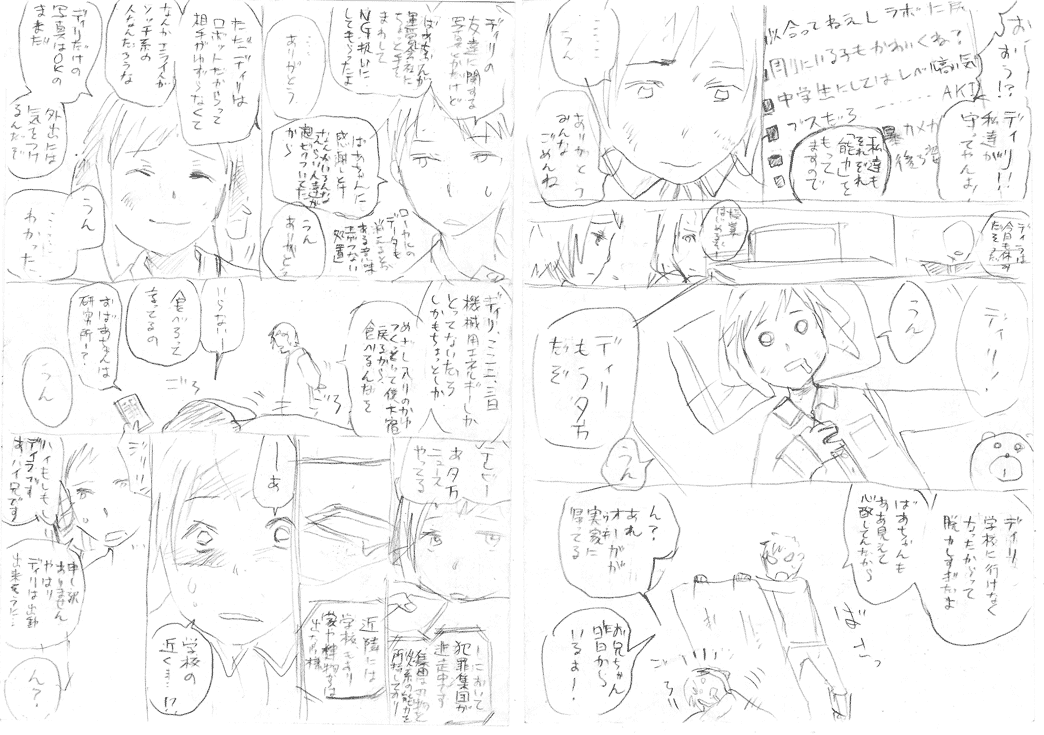 おすう!?
ディリ!!
私達が
守ってやんよ!
似合ってねえし ラボに戻
周りにいる子もかわいくね?
中学生にしてはレベル高い気
AKI
ブスだろ
カメカ
後ろ姿
私達も
それぞれ
「能力」を
もって
ますので
……
うん
ありがとう
みんな
ごめんね
ディラは
今日も休み
だそうだ
授業
はじめるぞ
ディリ!
うん
ディリ
もう夕方
だぞ
うん
ディリ
学校に行けなく
なったからって
脱力しすぎだよ
ばあちゃんも
ああ見えて
心配してんだから
ん?
あれ
オーガが
実家に
帰ってる
ばさっ
お兄ちゃん
昨日から
いるよ!
ごろ
ディリの
友達に関する
写真とかだけど
ばあちゃんが
運営会社に
ちょっと手を
まわして
NG扱いに
してもらったよ
……
ありがとう
ばあちゃんに
感謝しな
から
ローカルの
データも
消えるとか
ある意味
えげつない
処置
うん
ありがとな
ただディリは
ロボットだからって
相手がゆずらなくて
なんかエライ人が
ソッチ系の
人なんだろうな
ディリだけの
写真はOKの
ままだ
外出には
気をつけ
るんだぞ
うん
……
わかった
ディリ、ここ二、三日
機械用エネルギーしか
とってないだろ
しかもちょっとしか
食べるんだぞ
いらないー
食べろって
言ってるの
おばあちゃんは
研究所ー?
うん
ごろ
ごろ
テレビー
あ夕方
ニュース
やってる
ーにおいて
犯罪集団が
逃走中です
集団は刃物と
炎系の能力を
所持しており
近隣には
学校もあり
家や建物からは
出ない様
ーあ
学校の
近く…!?
ハイもしもし
ディラブです
あ、ハイ兄です
申し訳
ありません
やはり
ディリは出動
出来そうに…
ん?